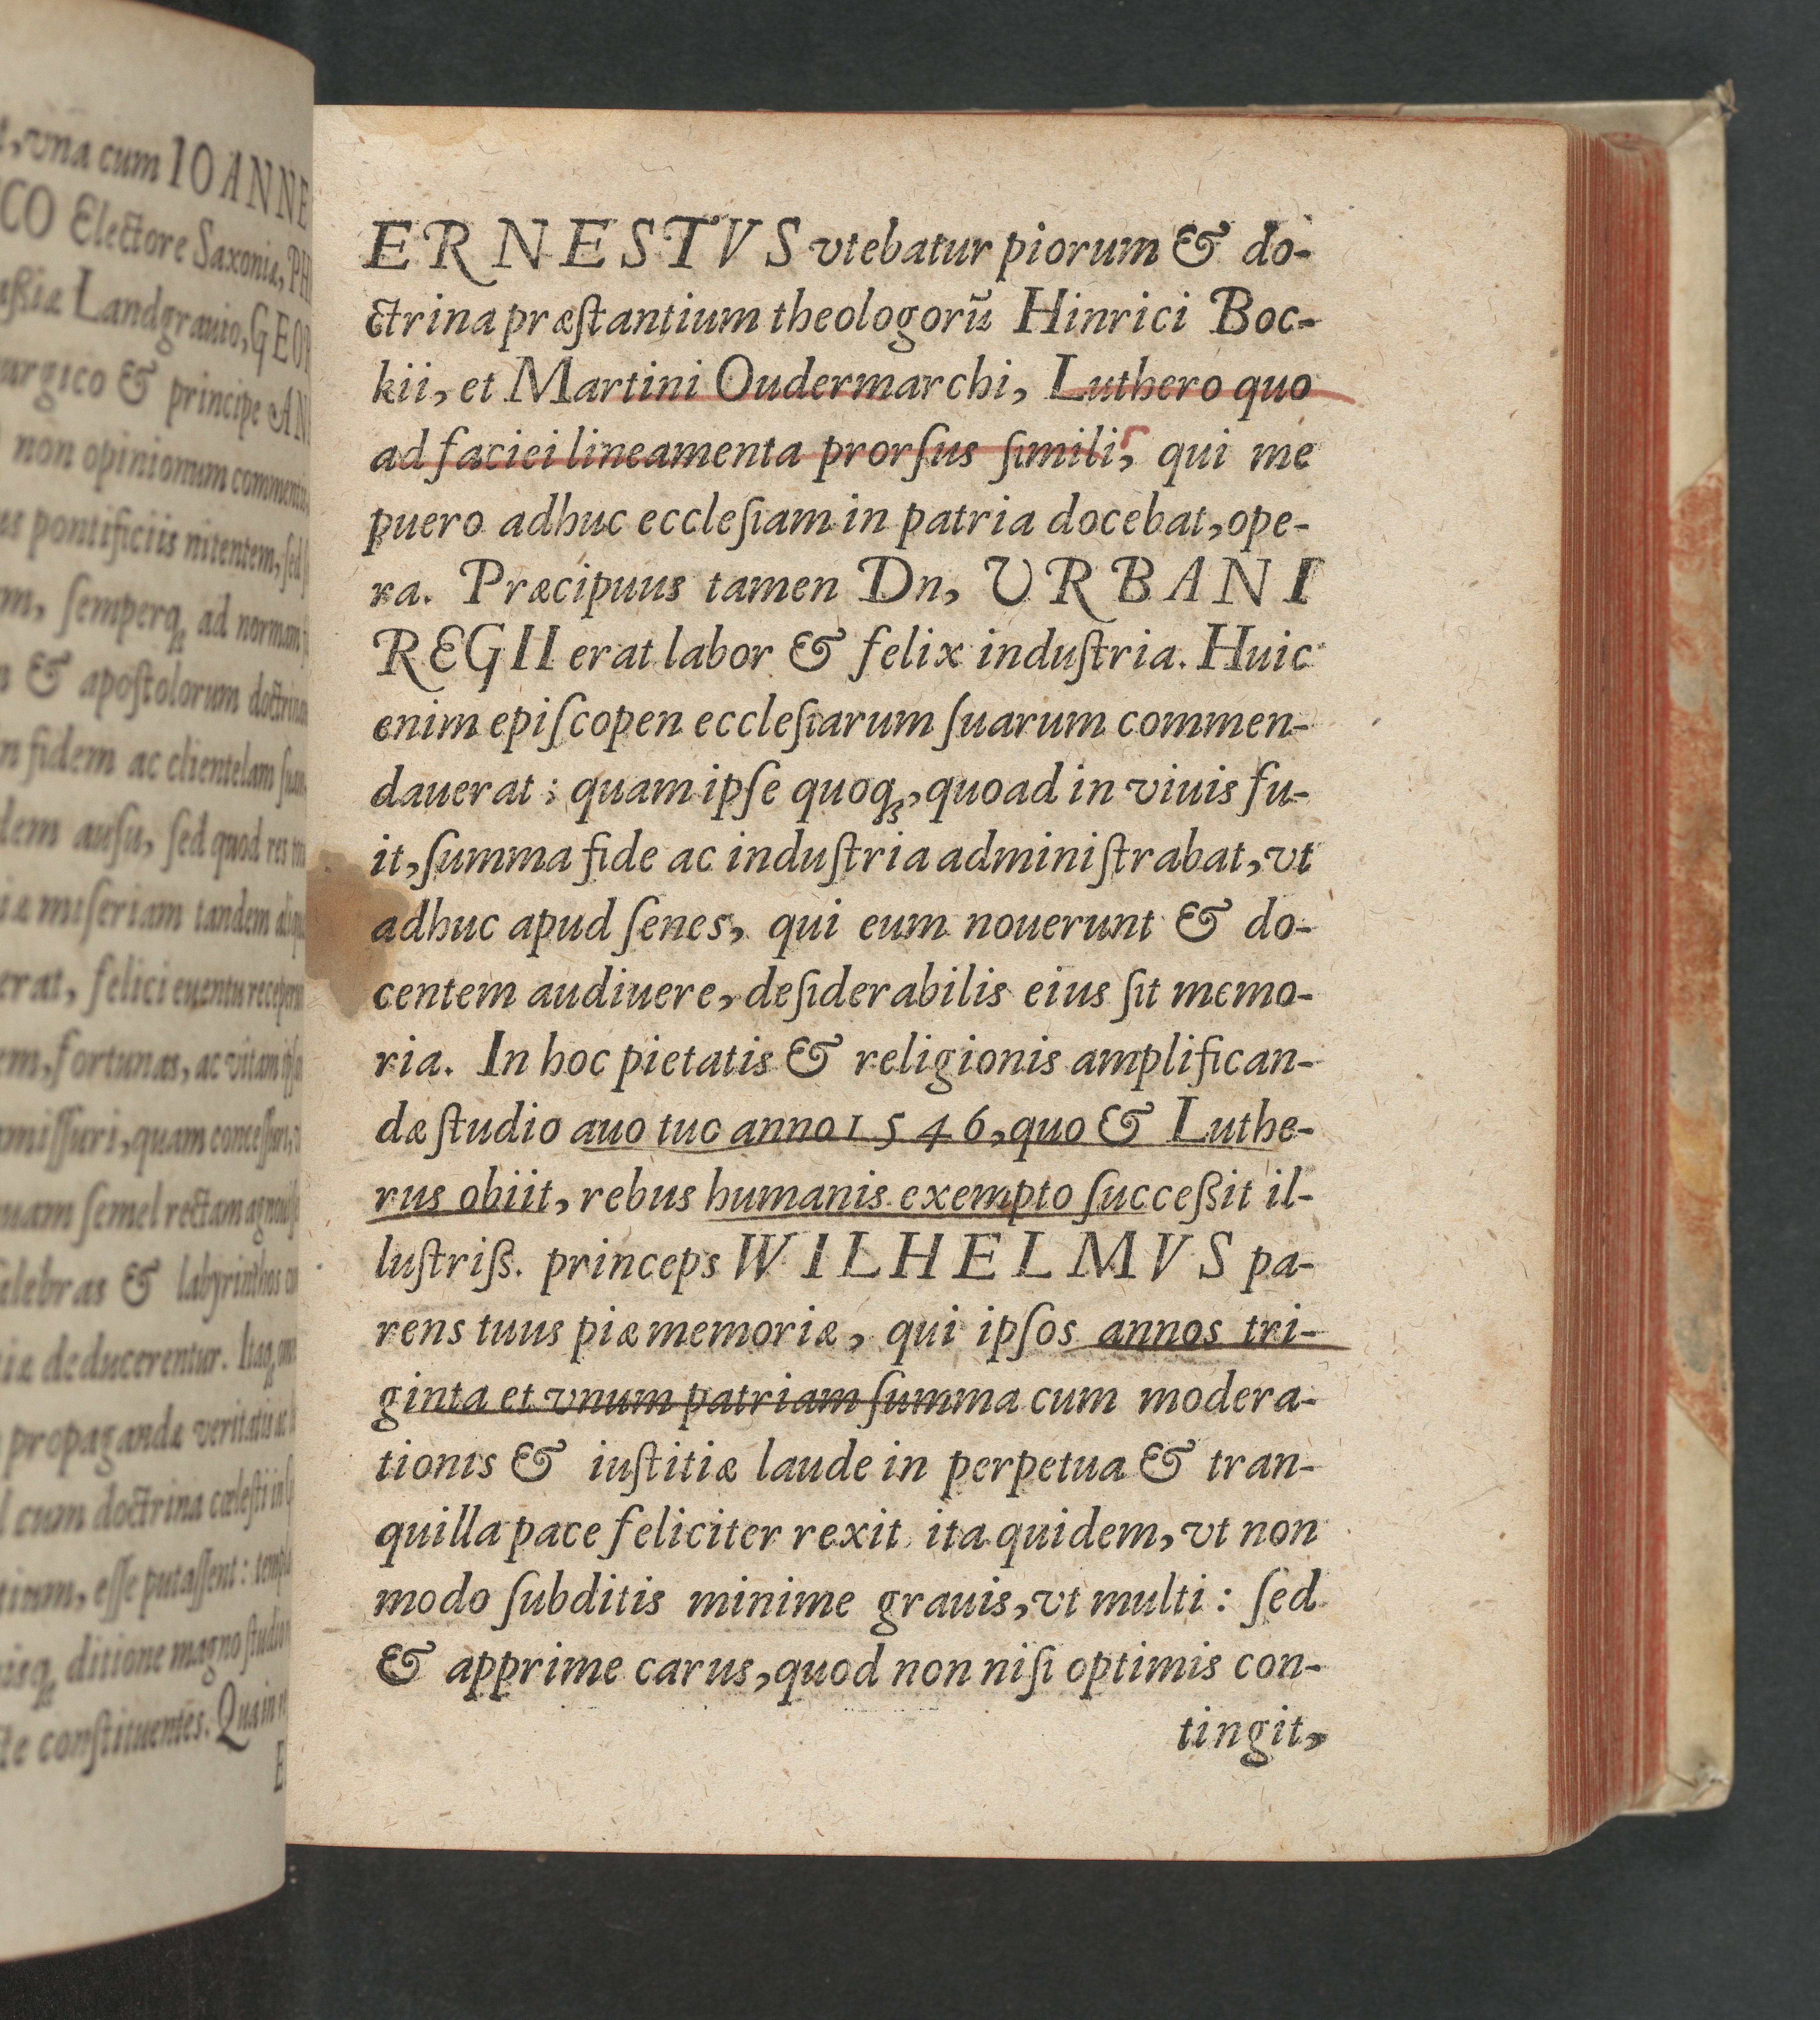 ,vna cum IOANNE
CO Electore Saxoniæ,
Landgrauio,
& principe
non opinionum
pontificiis nitentem,
semperq; ad normam
& apostolorum
fidem ac clientelam
ausu, sed quod res
miseriam tandem
erat, felici euentu
fortunas, ac vitam
quam
semel rectam
& labyrinthos
deducerentur. Itaq;
propagandæ veritatis ac
cum doctrina cœlesti in
esse putassent:
ditione magno studio
constituentes. Quain
E
ERNESTVS vtebatur piorum & do-
ctrina præstantium theologorū Hinrici Boc-
kii, et Martini Oudermarchi, Luthero quo
ad faciei lineamenta prorsus simili, qui me
puero adhuc ecclesiam in patria docebat, ope-
ra. Præcipuus tamen Dn, URBANI
REGII erat labor & felix industria. Huic
enim episcopen ecclesiarum suarum commen-
dauerat: quam ipse quoq;, quoad in viuis fu-
it, summa fide ac industria administrabat, vt
adhuc apud senes, qui eum nouerunt & do-
centem audiuere, desiderabilis eius sit memo-
ria. In hoc pietatis & religionis amplifican-
dæ studio auo tuo anno 1546, quo & Luthe-
rus obiit, rebus humanis exempto succeßit il-
lustriß. princeps WILHELMVS pa-
rens tuus piæ memoriæ, qui ipsos annos tri-
ginta et vnum patriam summa cum modera-
tionis & iustitiæ laude in perpetua & tran-
quilla pace feliciter rexit ita quidem, vt non
modo subditis minime grauis, vt multi: sed
& apprime carus, quod non nisi optimis con-
tingit,